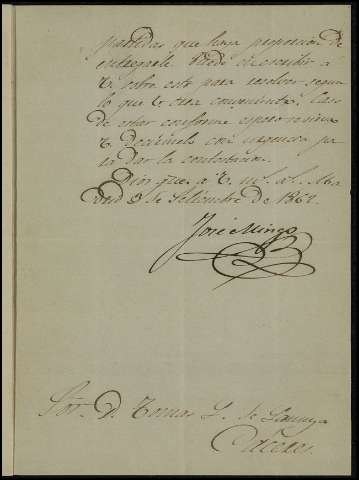 partidas que haya
entregarle. Puede
V. sobre esto para resolver segun
lo que V. crea conveniente. Caso
de estar conforme espero
V. decirmelo con urgencia pa
ra dar la contestacion.
Dios gue. a V. ms. as. Ma
drid 9 de Setiembre de 1862.
José Mingo
Sor. D. Tomas
Caceres.